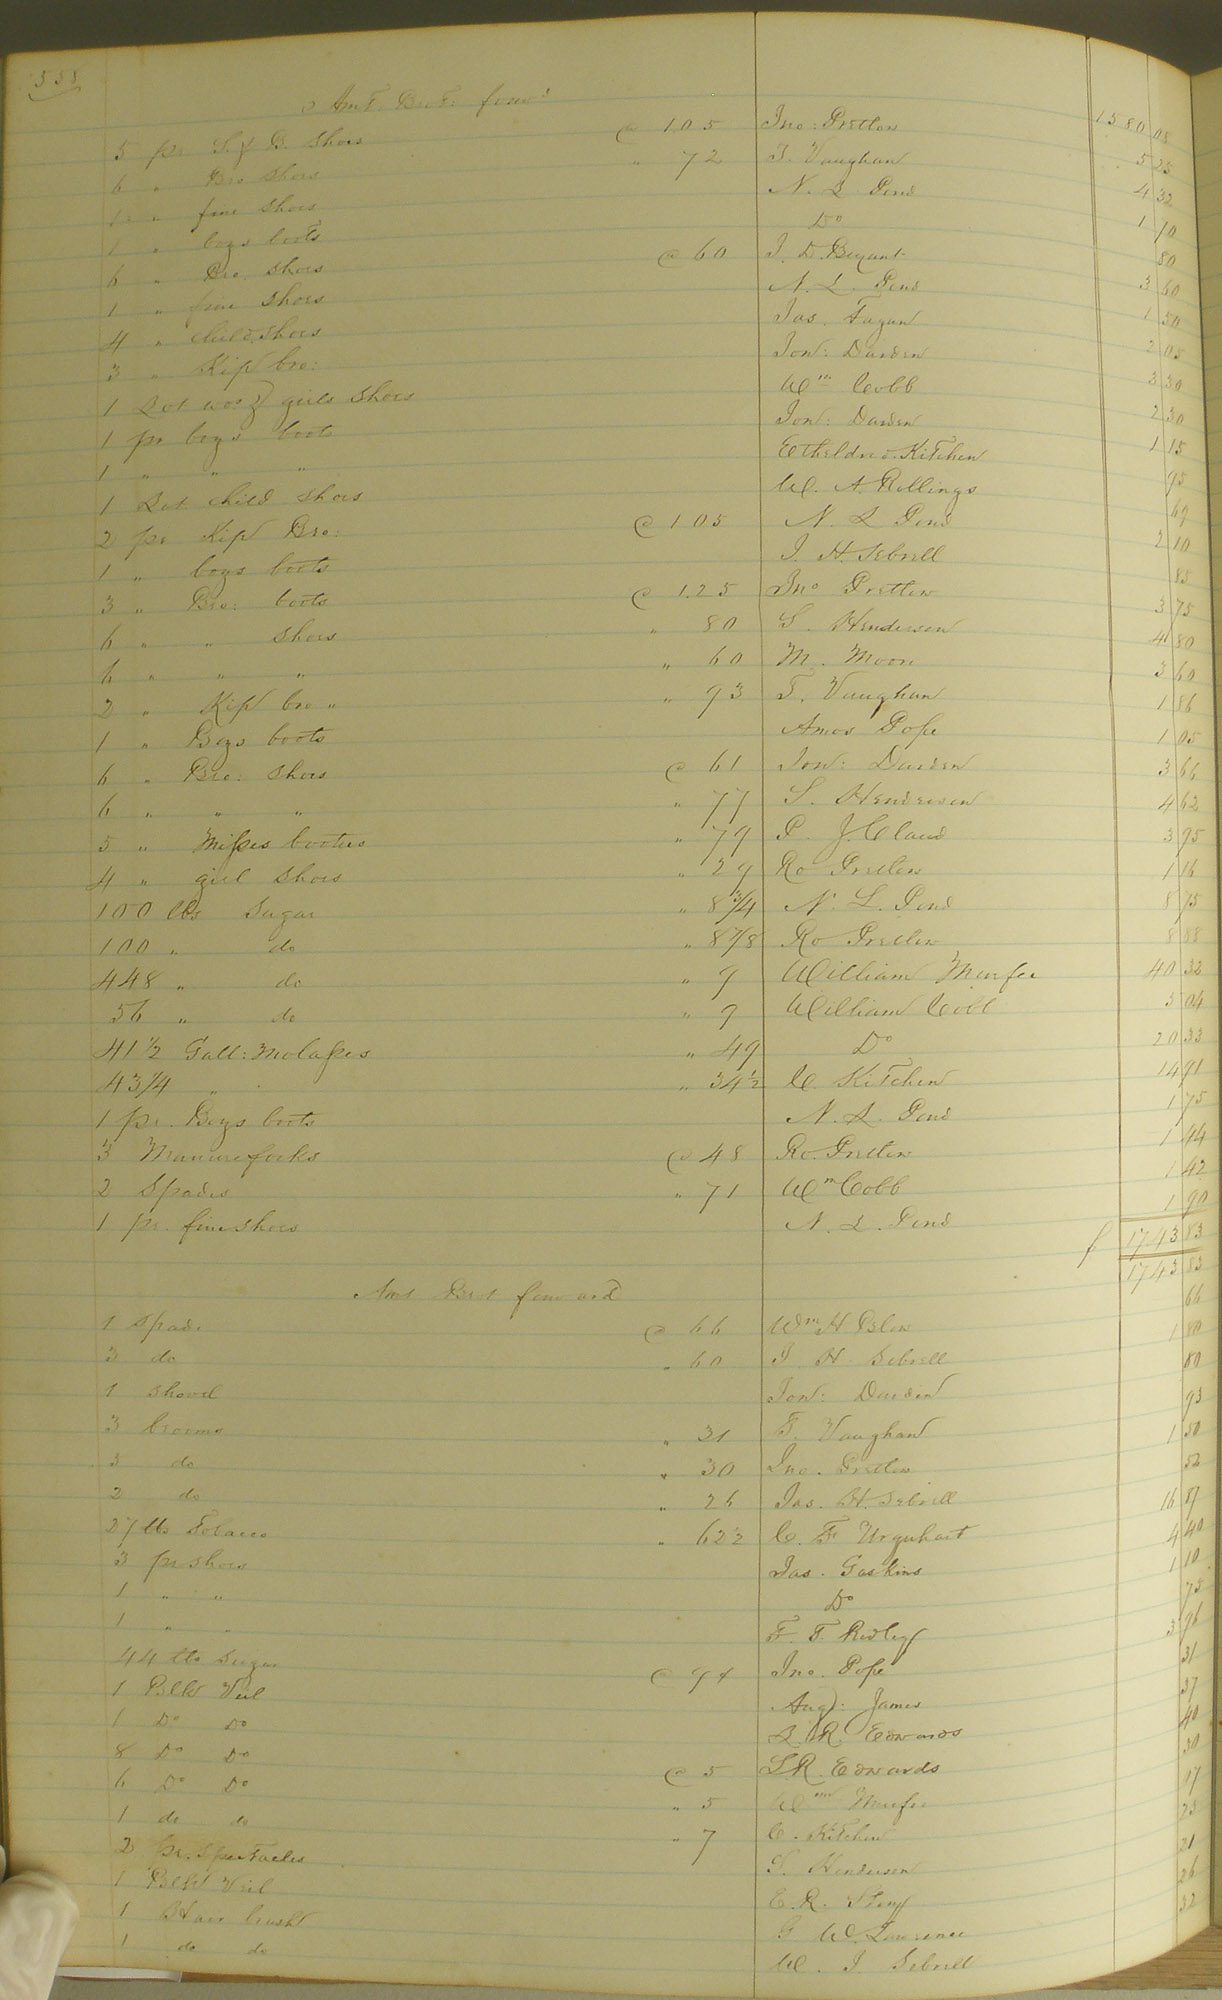 558
Amt. Brot. forwd 1580 08
5 pr. S. & B. Shoes @ 1.05 Jno: Pretlow 5 25
6 " Bro Shoes " 72 T. Vaughan 4 32
1 " fine Shoes N. L. Pond 1 10
1 " boys boots Do 80
6 " Bro. Shoes @ 60 J. D. Bryant 3 60
1 " fine Shoes N. L. Pond 1 50
4 " child Shoes Jas. Fagan 2 05
3 " Kip bro: Jon: Darden 3 30
1 Lot girls Shoes Wm Cobb 2 30
1 pr boys boots Jon: Darden 1 15
1 " " " Etheldred Kitchen 95
1 Lot child Shoes W. A. Rollings 69
2 pr Kip Bro: @ 1 05 N. L. Pond 2 10
1 " boys boots J. H. Sebrell 85
3 " Bro: boots @ 1.25 Jno Pretlow 3 75
6 " " Shoes " 80 S. Henderson 4 80
6 " " " " 60 M. Moon 3 60
2 " Kip bro " " 93 T. Vaughan 1 86
1 " Boys boots Amos Pope 1 05
6 " Bro: Shoes @ 61 Jon: Darden 3 66
6 " " " " 77 S. Henderson 4 62
5 " Misses booties " 79 P. J. Claud 3 95
4 " girl Shoes " 29 Ro Pretlow 1 16
100 lbs Sugar " 8 3/4 N. L. Pond 8 75
100 " do " 8 7/8 Ro Pretlow 8 88
448 " do " 9 William Murfee 40 32
56 " do " 9 William Cobb 5 04
41 1/2 Gall: Molasses " 49 Do 20 33
43 1/4 " " 34 1/2 C. Kitchen 14 91
1 pr. Boys boots N. L. Pond 1 75
3 Manure forks @ 48 Ro. Pretlow 1 44
2 Spades " 71 Wm Cobb 1 42
1 pr. fine shoes N. L. Pond 1 90
1743 83
Amt Brot forward 1743 83
1 Spade @ 66 Wm H Blow 66
3 do " 60 J. H. Sebrell 1 80
1 Shovel Jon: Darden 80
3 brooms " 31 T. Vaughan 93
3 do " 30 Jno. Pretlow 1 50
2 do " 26 Jas. H. Sebrell 52
27 lbs Tobacco " 62 1/2 C. F. Urquhart 16 87
3 pr shoes Jas. Gaskins 4 40
1 " " Do 1 10
1 " " F. T. Ridley 75
44 lbs Sugar @ 9 Jno. Pope 3 96
1 Blk Veil Augs: James 31
1 Do Do L. R. Edwards 37
8 Do Do @ 5 L. R. Edwards 40
6 Do Do " 5 Wm Murfee 30
1 do do " 7 C. Kitchen 07
2 pr. Spectacles S. Henderson 25
1 Blk Veil E. R. 21
1 Hair brush G. W. Lawrence 26
1 do do W. J. Sebrell 32